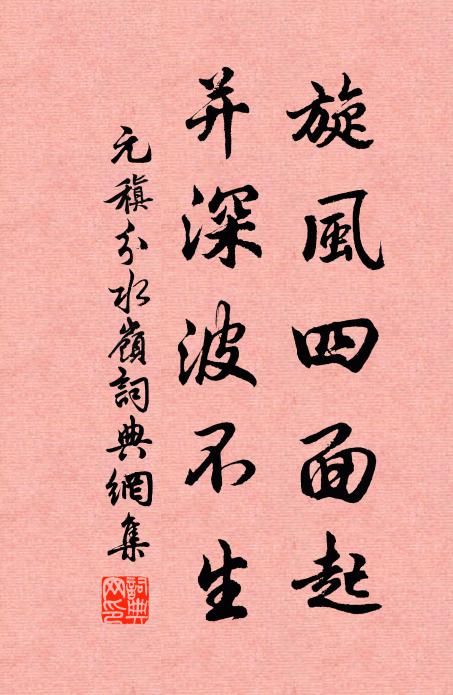 旋風四面起
并深波不生
元稹分水嶺詞典網集
詞典網印